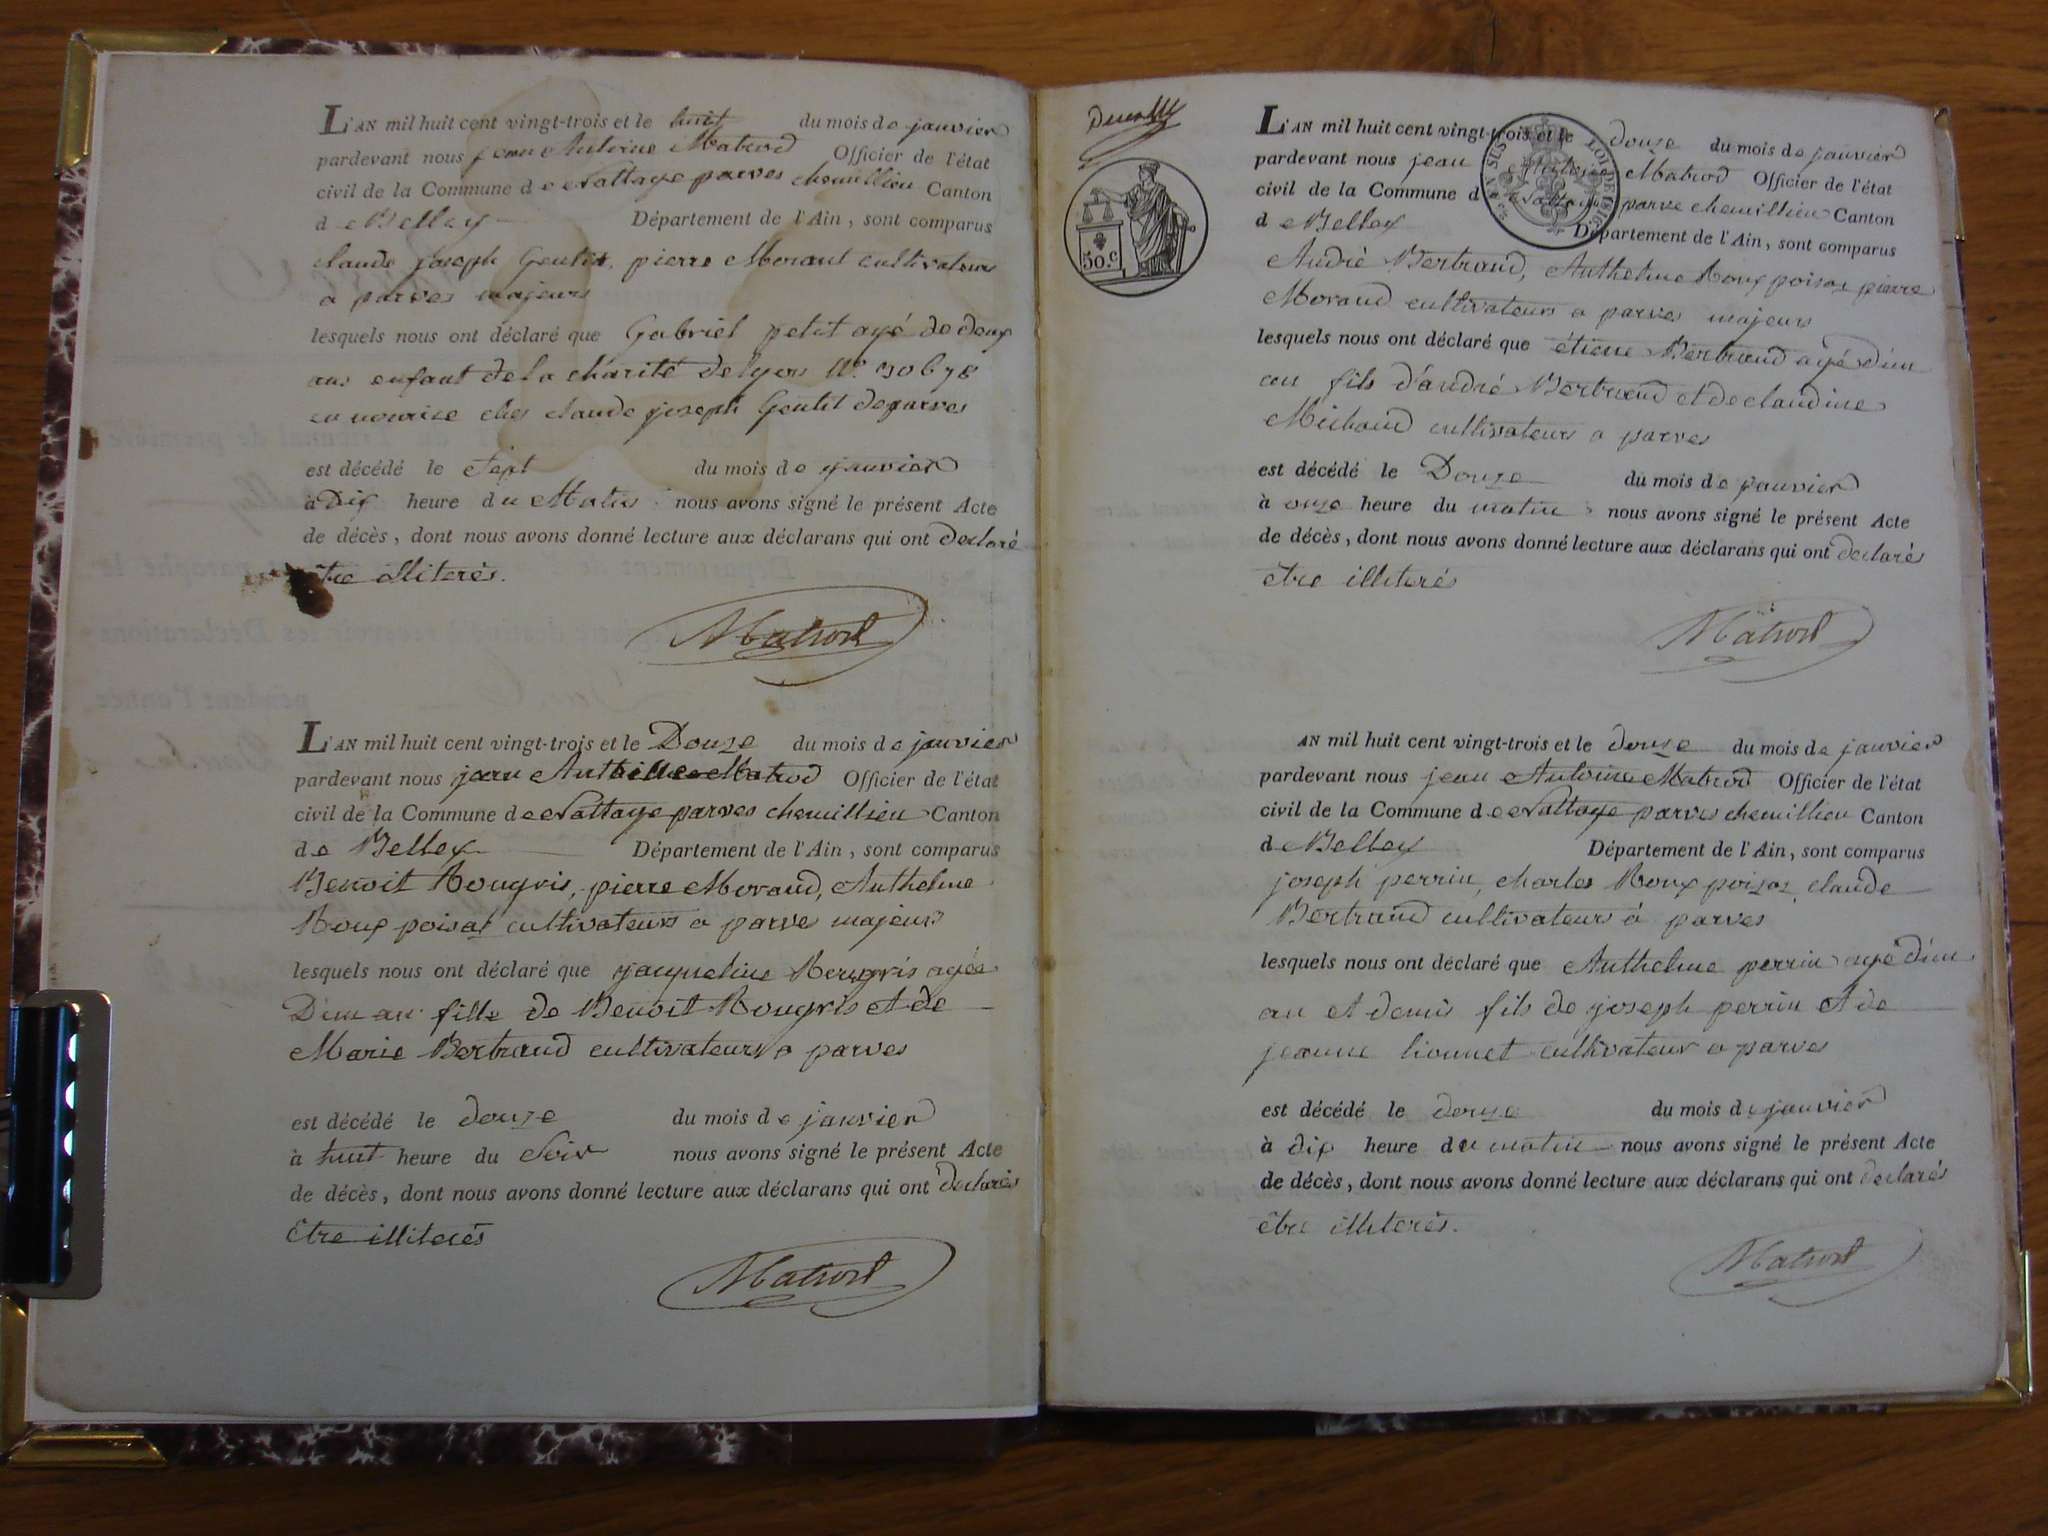 L'AN mil huit cent vingt-trois et le huit du mois de janvier
pardevant nous jean Antoine Matrod Officier de l'état
civil de la Commune de Nattage parves chemillieu Canton
de Belley Département de l'Ain, sont comparus
claude joseph Gentit, pierre Moraud cultivateurs
a parves majeurs
lesquels nous ont déclaré que Gabriel petit agé de deux
ans enfant de la charité de lyon N.º
en nourice ches claude joseph Gentit de parves
est décédé le Sept du mois de janvier
à Dix heure du Matin nous avons signé le présent Acte
de décès, dont nous avons donné lecture aux déclarans qui ont declaré
être illiterés.
Matrod
L'AN mil huit cent vingt-trois et le Douze du mois de janvier
pardevant nous jean Matrod Officier de l'état
civil de la Commune de Nattage parves chemillieu Canton
de Belley Département de l'Ain, sont comparus
Benoit Rougris, pierre Moraud, Anthelme
Roux poisat cultivateurs a parves majeurs
lesquels nous ont déclaré que jacqueline Rougris agée
D'un an fille de Benoit Rougris et de
Marie Bertrand cultivateurs a parves
est décédé le douze du mois de janvier
à huit heure du Soir nous avons signé le présent Acte
de décès, dont nous avons donné lecture aux déclarans qui ont declarés
être illiterés
Matrod
50.c
LOI DE 1816.
L'AN mil huit cent vingt-trois et le douze du mois de janvier
pardevant nous jean Antoine Matrod Officier de l'état
civil de la Commune de Nattage parve chemillieu Canton
de Belley Département de l'Ain, sont comparus
André Bertrand, Anthelme Roux poisat pierre
Moraud cultivateurs a parves majeurs
lesquels nous ont déclaré que étiene Bertrand agé d'un
an fils d'andré Bertrand et de claudine
Michaud cultivateurs a parves
est décédé le Douze du mois de janvier
à onze heure du matin nous avons signé le présent Acte
de décès, dont nous avons donné lecture aux déclarans qui ont declarés
être illiterés
Matrod
AN mil huit cent vingt-trois et le douze du mois de janvier
pardevant nous jean Antoine Matrod Officier de l'état
civil de la Commune de Nattage parves chemillieu Canton
de Belley Département de l'Ain, sont comparus
joseph perrin, charles Roux poisat, claude
Bertrand cultivateurs à parves
lesquels nous ont déclaré que Anthelme perrin agé d'un
an et demis fils de joseph perrin et de
jeanne lionnet cultivateur a parves
est décédé le douze du mois de janvier
à dix heure du matin nous avons signé le présent Acte
de décès, dont nous avons donné lecture aux déclarans qui ont declarés
être illiterés.
Matrod